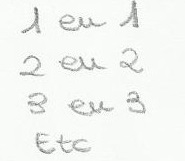 1 en 1
2 en 2
3 en 3
Etc